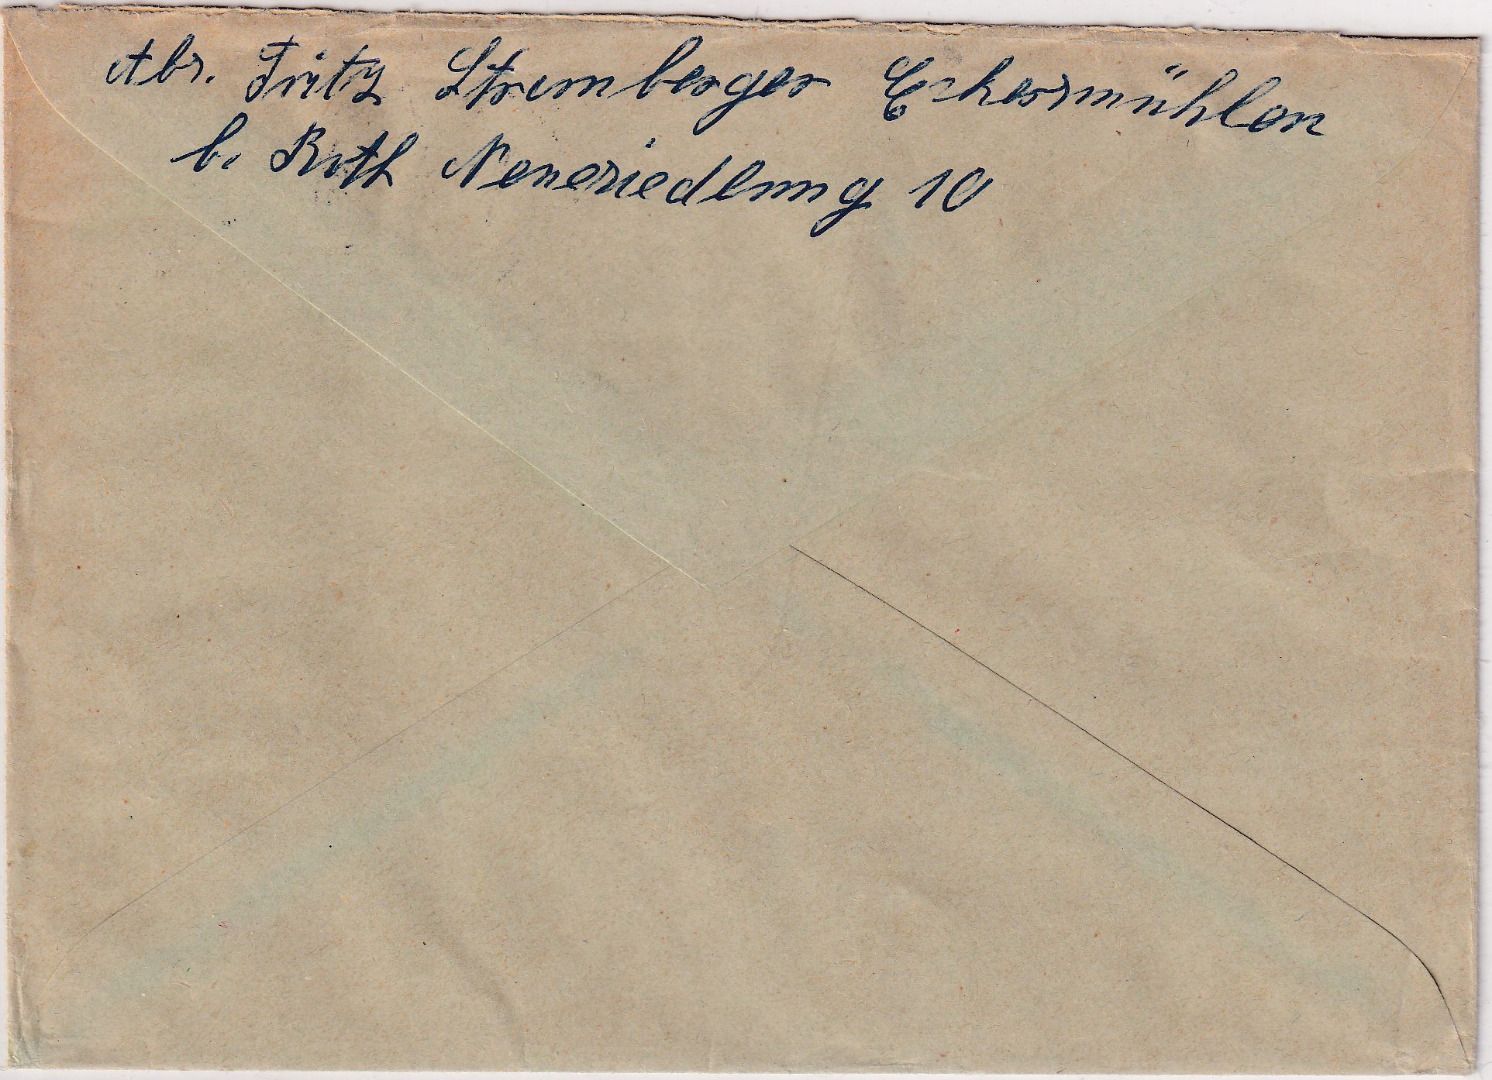 Abs. Fritz Stromberger Eckersmühlen
b. Roth Neusiedlung 10